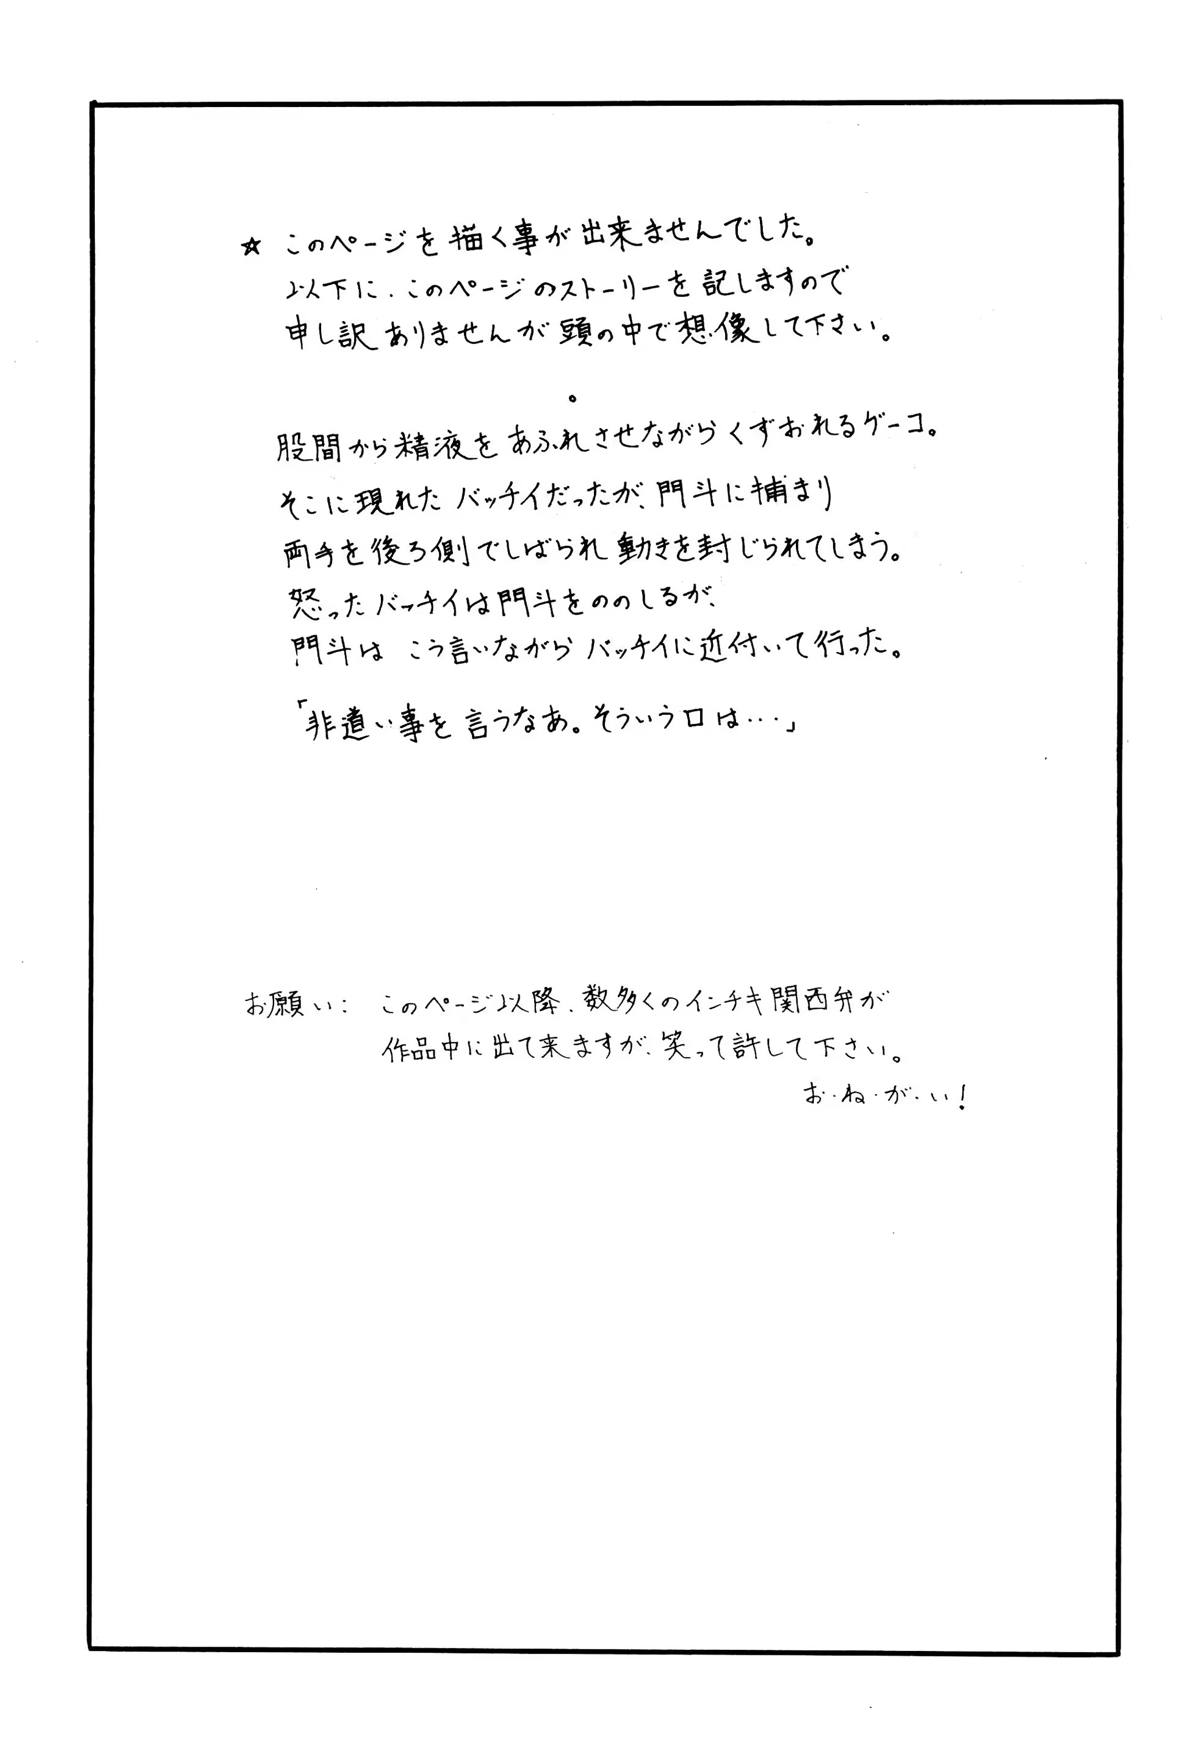 ☆ このページを描く事が出来ませんでした。
以下に、このページのストーリーを記しますので
申し訳ありませんが頭の中で想像して下さい。
。
股間から精液をあふれさせながらくずおれるゲーコ。
そこに現れたバッチイだったが、門斗に捕まり
両手を後ろ側でしばられ動きを封じられてしまう。
怒ったバッチイは門斗をののしるが、
門斗は こう言いながらバッチイに近付いて行った。
「非道い事を言うなあ。そういう口は…」
お願い: このページ以降、数多くのインチキ関西弁が
作品中に出て来ますが、笑って許して下さい。
お・ね・が・い!